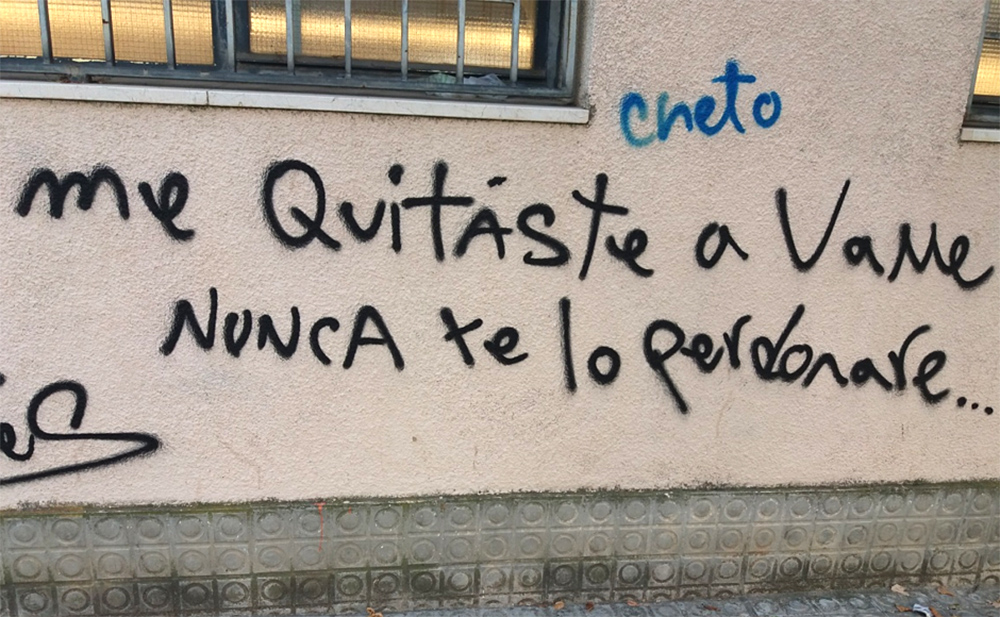 cheto
me QUITASte a Valle
NUNCA te lo perdonare...